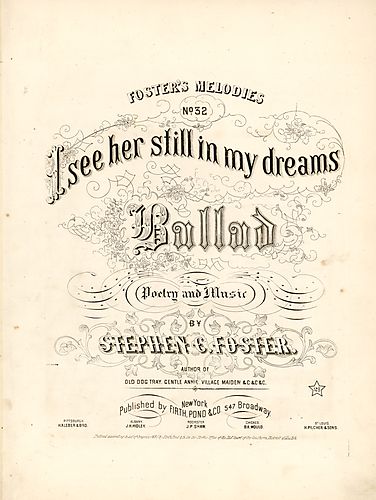 FOSTER'S MELODIES
No 32
I see her still in my dreams
Ballad
Poetry and Music
BY
STEPHEN C. FOSTER.
AUTHOR OF
OLD DOG TRAY, GENTLE ANNIE, VILLAGE MAIDEN &C &C &C.
New York
Published by FIRTH, POND & CO 547 Broadway
PITTSBURGH ALBANY ROCHESTER CHICAGO ST LOUIS
H. KLEBER & BRO. J.H. HIDLEY J.P. SHAW H. PILCHER & SONS.